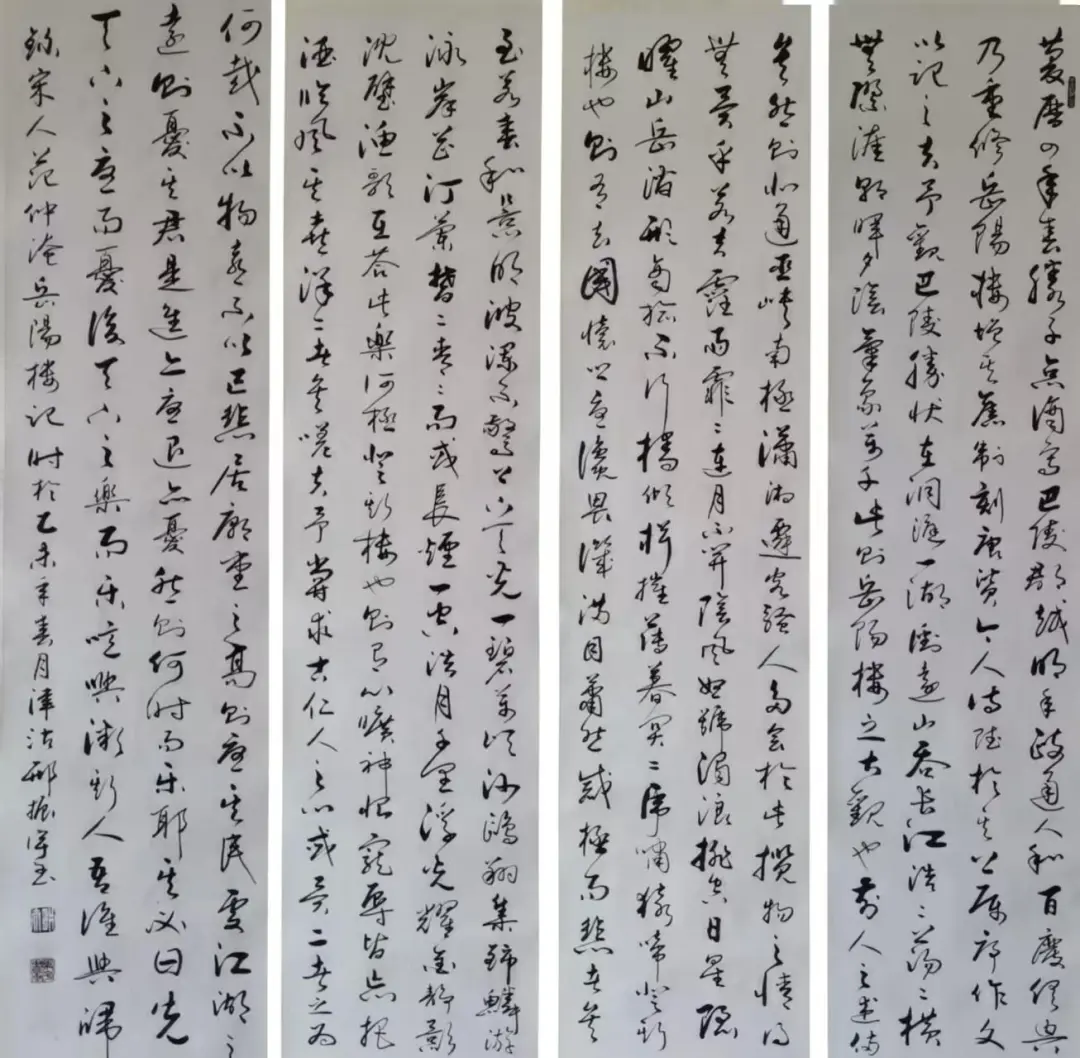 慶曆四年春滕子京謫守巴陵郡越明年政通人和百廢俱興
乃重修岳陽樓增其舊制刻唐賢今人詩賦於其上屬予作文
以記之夫予觀巴陵勝狀在洞庭一湖銜遠山吞長江浩〻湯〻橫
無際涯朝暉夕陰氣象萬千此則岳陽樓之大觀也前人之述備
矣然則北通巫峽南極瀟湘遷客騷人多會於此攬物之情得
無異乎若夫霪雨霏〻連月不開陰風怒號濁浪排空日星隱
曜山岳潛形商旅不行檣傾楫摧薄暮冥〻虎嘯猿啼登斯
樓也則有去國懷鄉憂讒畏譏滿目蕭然感極而悲者矣
至若春和景明波瀾不驚上下天光一碧萬頃沙鷗翔集錦鱗游
泳岸芷汀蘭鬱〻青〻而或長煙一空浩月千里浮光耀金靜影
沈璧漁歌互答此樂何極登斯樓也則有心曠神怡寵辱皆忘把
酒臨風其喜洋〻者矣嗟夫予嘗求古仁人之心或異二者之為
何哉不以物喜不以己悲居廟堂之高則憂其民處江湖之
遠則憂其君是進亦憂退亦憂然則何時而樂耶其必曰先
天下之憂而憂後天下之樂而樂噫微斯人吾誰與歸
錄宋人范仲淹岳陽樓記時於乙未年春月津沽邢振